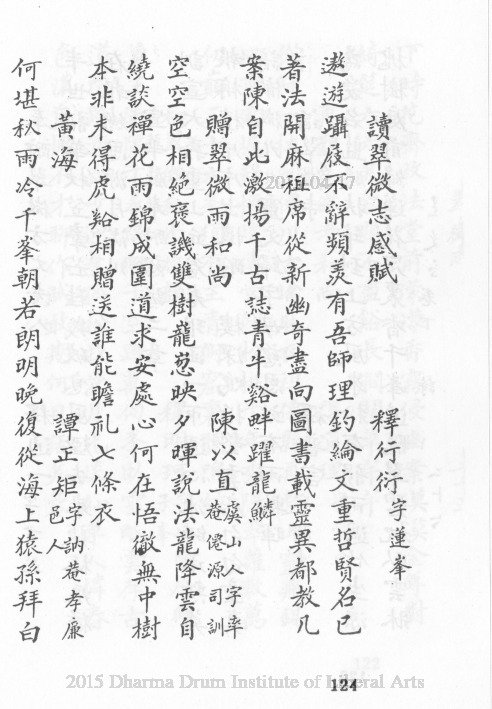 讀翠微志感賦 釋行衍 字蓮峯
遨遊躡屐不辭頻羨有吾師理釣綸文重哲賢名已
著法開麻祖席從新幽奇盡向圖書載靈異都教凡
案陳自此激揚千古誌青牛谿畔躍龍鱗
贈翠微雨和尚 陳以直 虞山人字率菴僊源司訓
空空色相絕褒譏雙樹龍葱映夕暉說法龍降雲自
繞談禪花雨錦成圍道求安處心何在悟徹無中樹
本非未得虎谿相贈送誰能瞻礼七條衣
黃海 譚正矩 字訥菴孝廉邑人
何堪秋雨冷千峯朝若朗明晚復從海上猿孫拜白
124
2015 Dharma Drum Institute of Liberal Arts